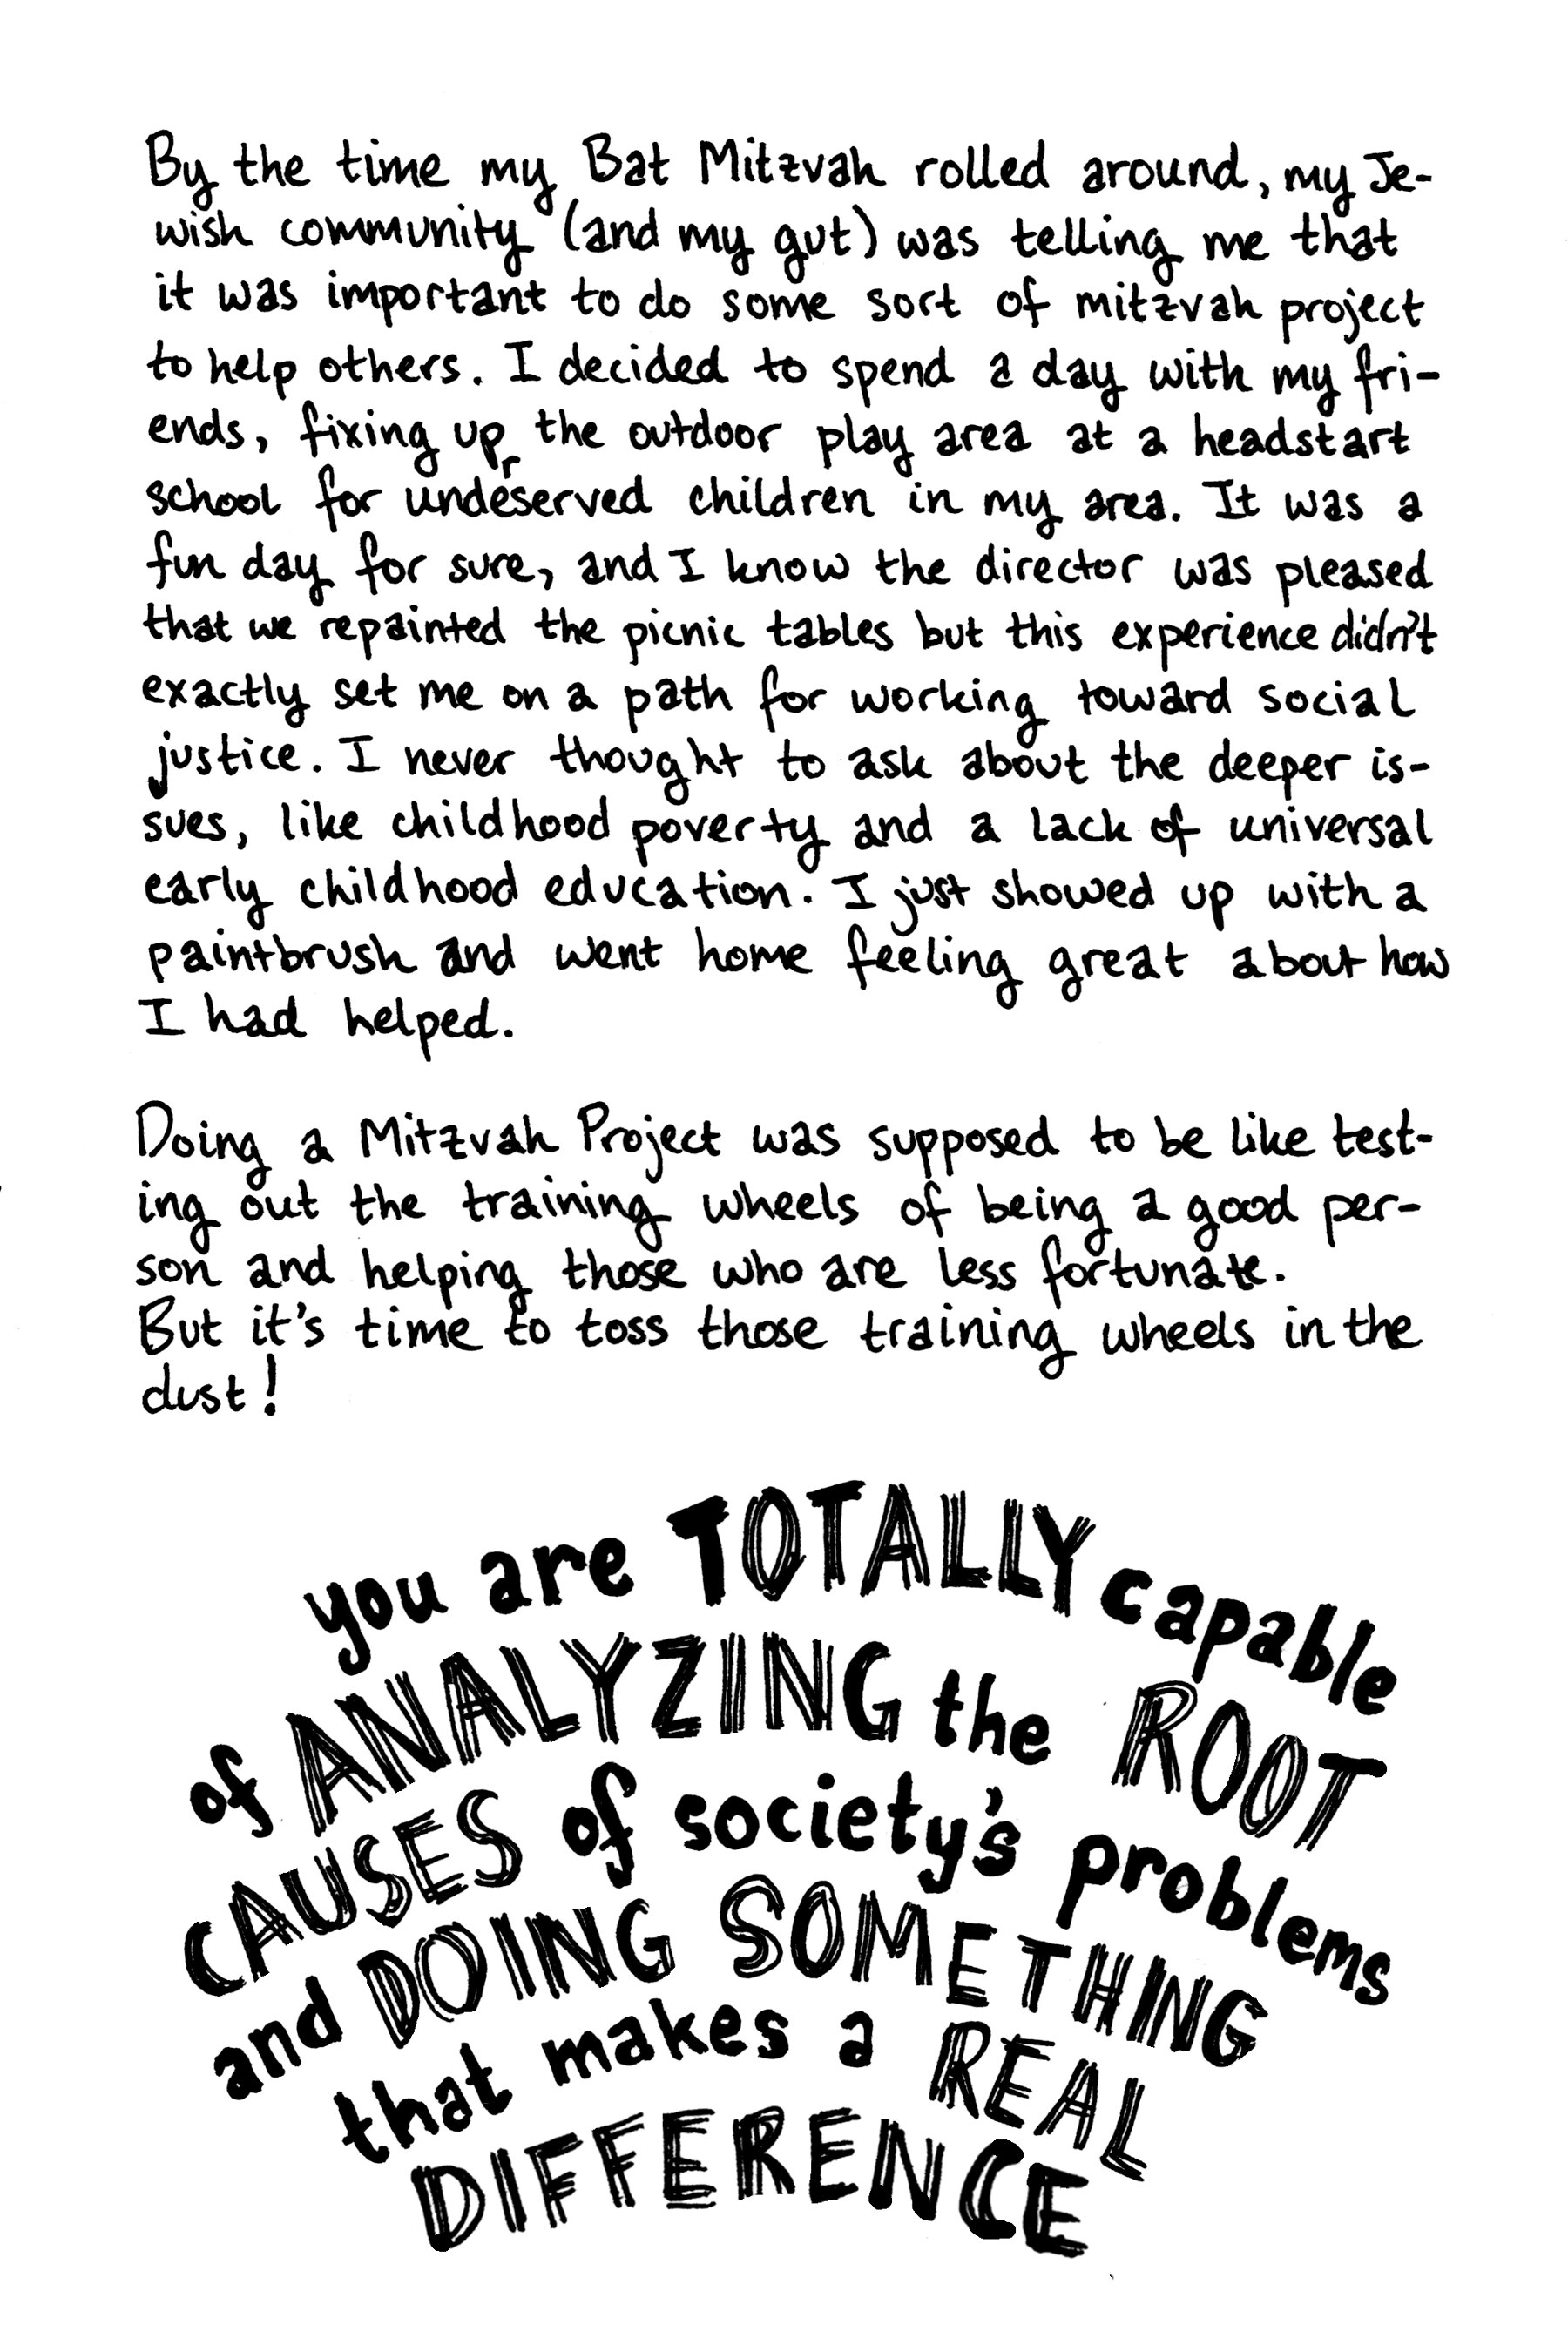 By the time my Bat Mitzvah rolled around, my Je-
wish community (and my gut) was telling me that
it was important to do some sort of mitzvah project
to help others. I decided to spend a day with my fri-
ends, fixing up the outdoor play area at a headstart
school for underserved children in my area. It was a
fun day for sure, and I know the director was pleased
that we repainted the picnic tables but this experience didn't
exactly set me on a path for working toward social
justice. I never thought to ask about the deeper is-
sues, like childhood poverty and a lack of universal
early childhood education. I just showed up with a
paintbrush and went home feeling great about how
I had helped.
Doing a Mitzvah Project was supposed to be like test-
ing out the training wheels of being a good per-
son and helping those who are less fortunate.
But it's time to toss those training wheels in the
dust!
you are TOTALLY capable
of ANALYZING the ROOT
CAUSES of society's problems
and DOING SOMETHING
that makes a REAL
DIFFERENCE